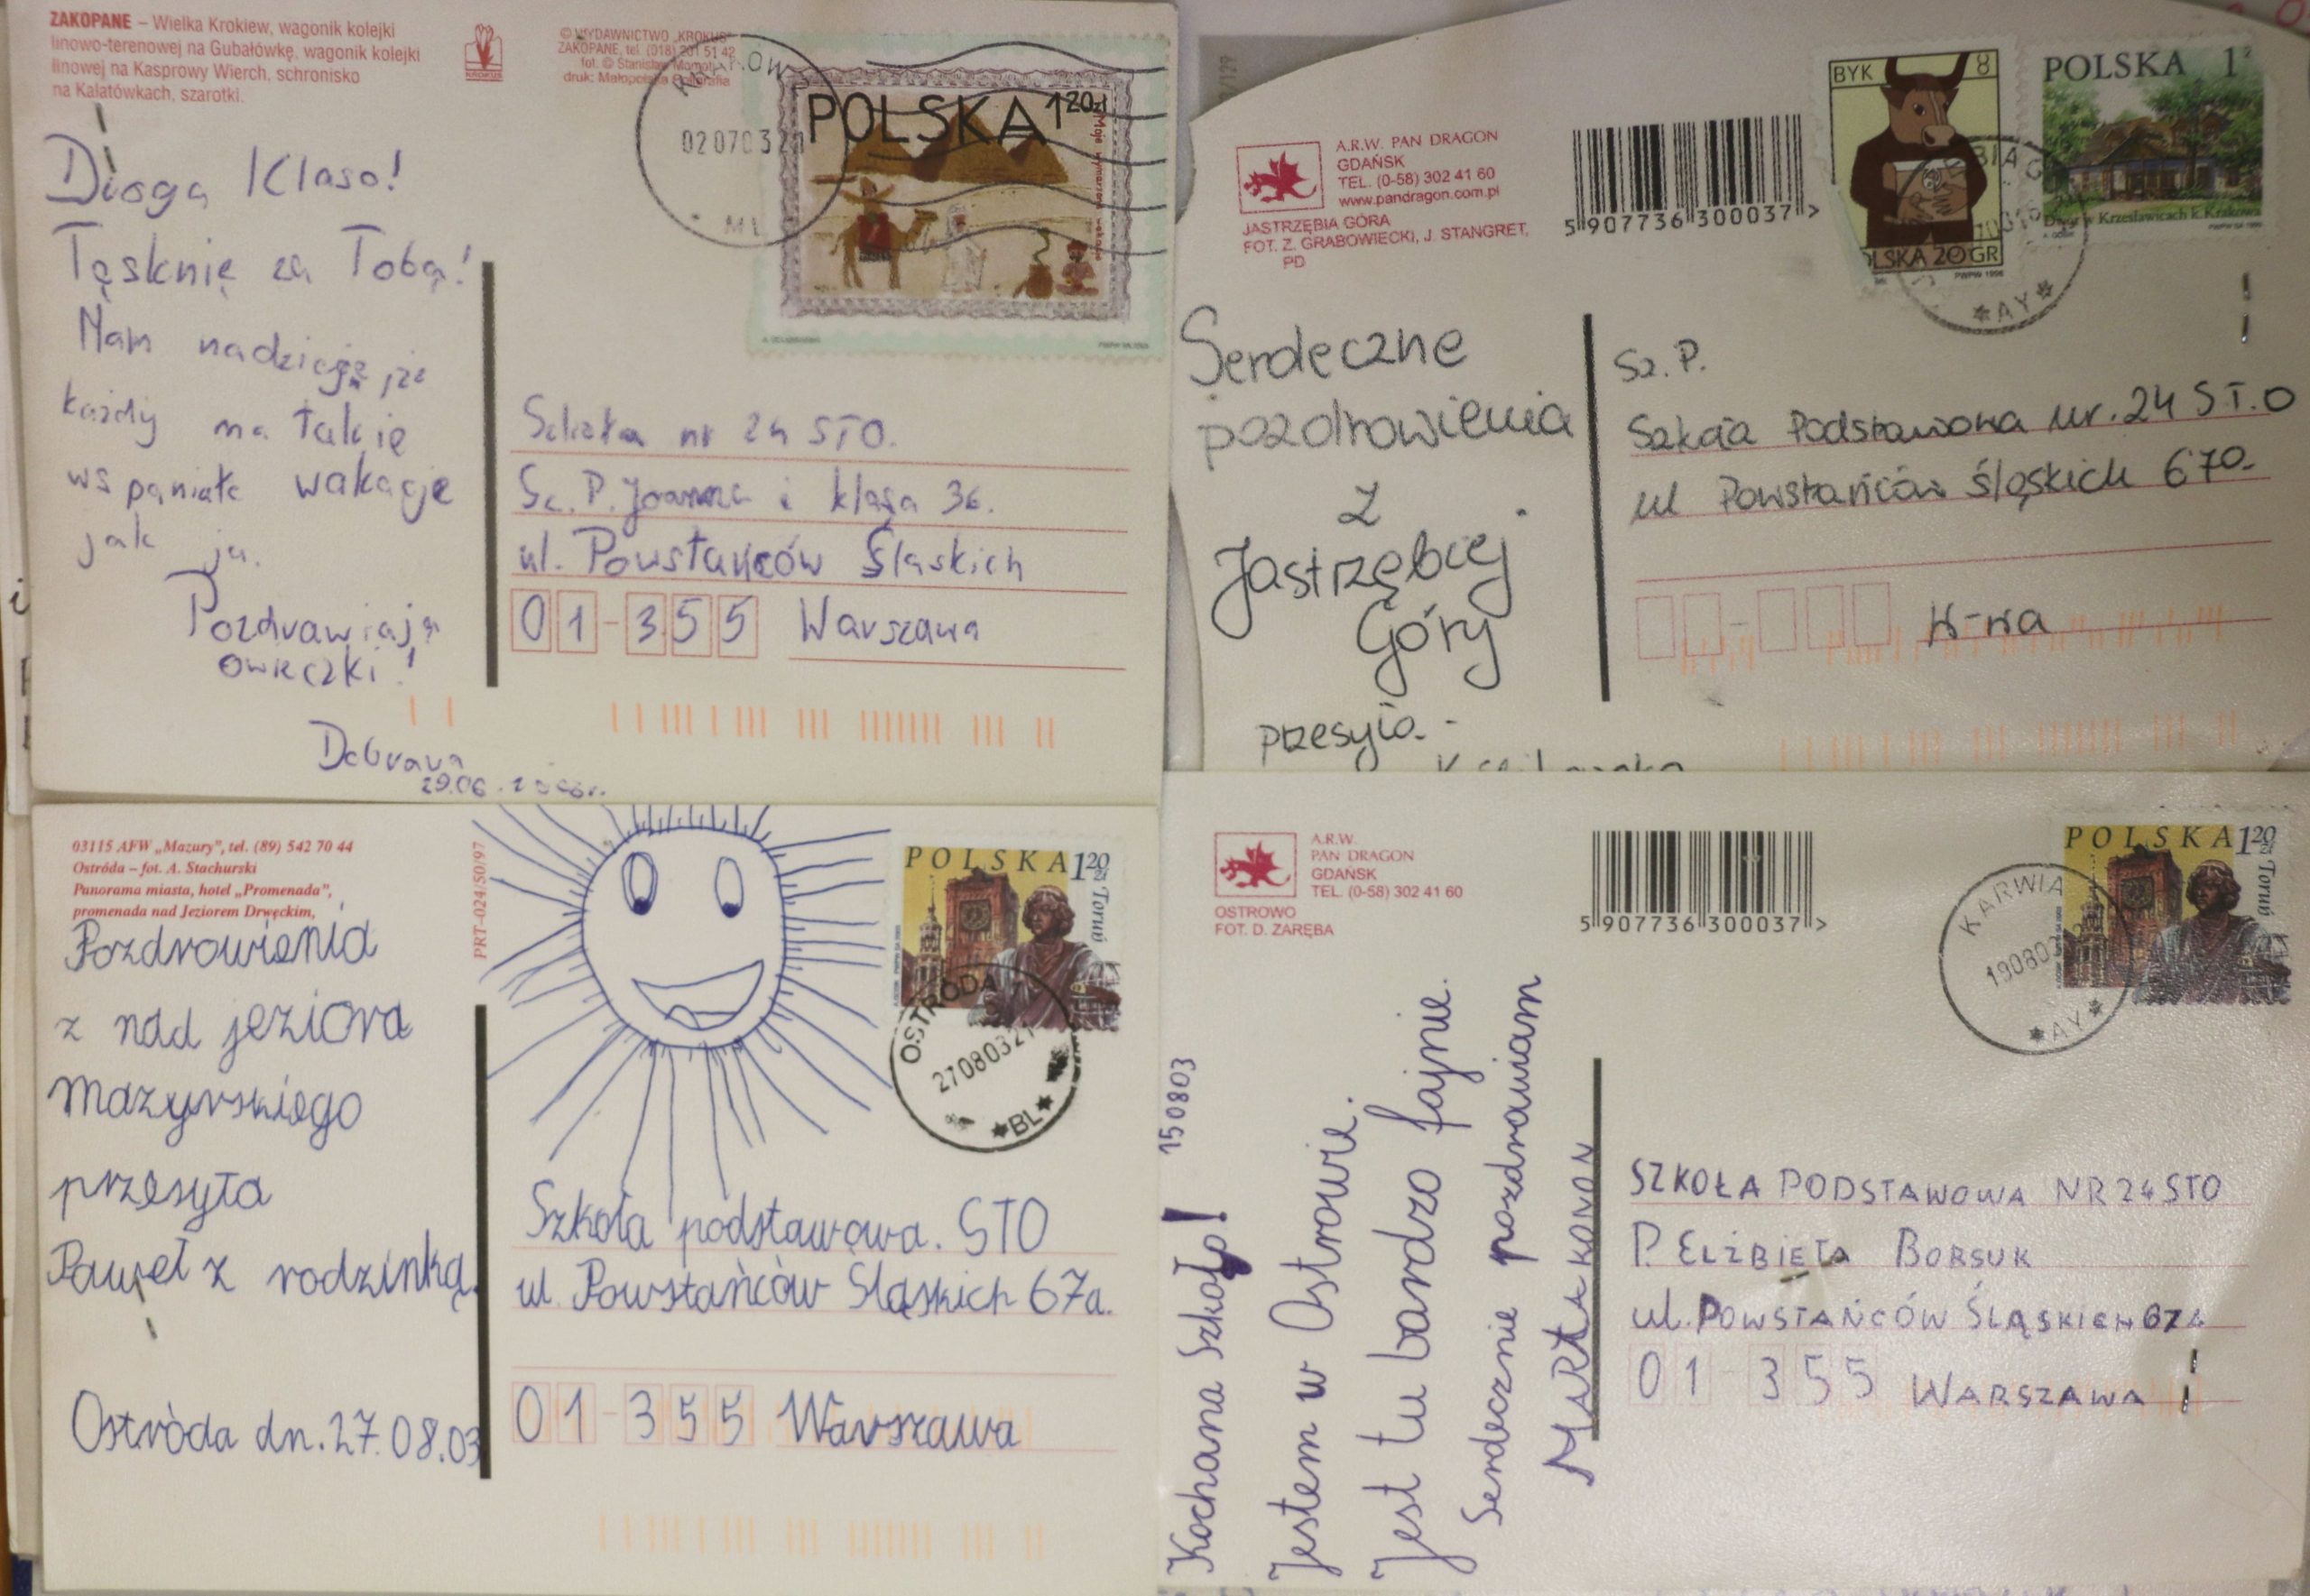 ZAKOPANE – Wielka Krokiew, wagonik kolejki
linowo-terenowej na Gubałówkę, wagonik kolejki
linowej na Kasprowy Wierch, schronisko
na Kalatówkach, szarotki.
KROKUS
© WYDAWNICTWO „KROKUS”
ZAKOPANE, tel. (018) 201 51 42
fot. © Stanisław
druk: Małopolska
020703
POLSKA 1 20zł
Droga Klaso!
Tęsknię za Tobą!
Mam nadzieję, że
każdy ma takie
wspaniałe wakacje
jak ja.
Pozdrawiają
owieczki!
Dobrava
29.06.
Szkoła nr 24 STO.
Sz. P. Joanna i klasa 36.
ul. Powstańców Śląskich
01-355 Warszawa
A.R.W. PAN DRAGON
GDAŃSK
TEL. (0-58) 302 41 60
www.pandragon.com.pl
JASTRZĘBIA GÓRA
FOT. Z. GRABOWIECKI, J. STANGRET,
PD
5 907736 300037 >
BYK 8
POLSKA 20 GR
PWPW 1996
POLSKA 1
Dwór w Krzesławicach k. Krakowa
*AY*
Serdeczne
pozdrowienia
z
Jastrzębiej
Góry
przesyła
Sz. P.
Szkoła Podstawowa nr. 24 S.T.O
ul Powstańców śląskich 670
W-wa
03115 AFW „Mazury”, tel. (89) 542 70 44
Ostróda – fot. A. Stachurski
Panorama miasta, hotel „Promenada”,
promenada nad Jeziorem Drwęckim,
PRT-024/S0/97
POLSKA 1 20 zł
Toruń
OSTRÓDA
27080321
*BL*
Pozdrowienia
z nad jeziora
Mazurskiego
przesyła
Paweł z rodzinką.
Ostróda dn. 27.08.03
Szkoła podstawowa. STO
ul. Powstańców Śląskich 67a.
01-355 Warszawa
A.R.W.
PAN DRAGON
GDAŃSK
TEL. (0-58) 302 41 60
OSTROWO
FOT. D. ZARĘBA
5 907736 300037 >
POLSKA 1 20 zł
Toruń
KARWIA
190803
*AY*
150803
Kochana Szkoło!
Jestem w Ostrowie.
Jest tu bardzo fajnie.
Serdecznie pozdrawiam
MARTA KONON
SZKOŁA PODSTAWOWA NR 24 STO
P. ELŻBIETA BORSUK
ul. POWSTAŃCÓW ŚLĄSKICH 67A
01-355 WARSZAWA